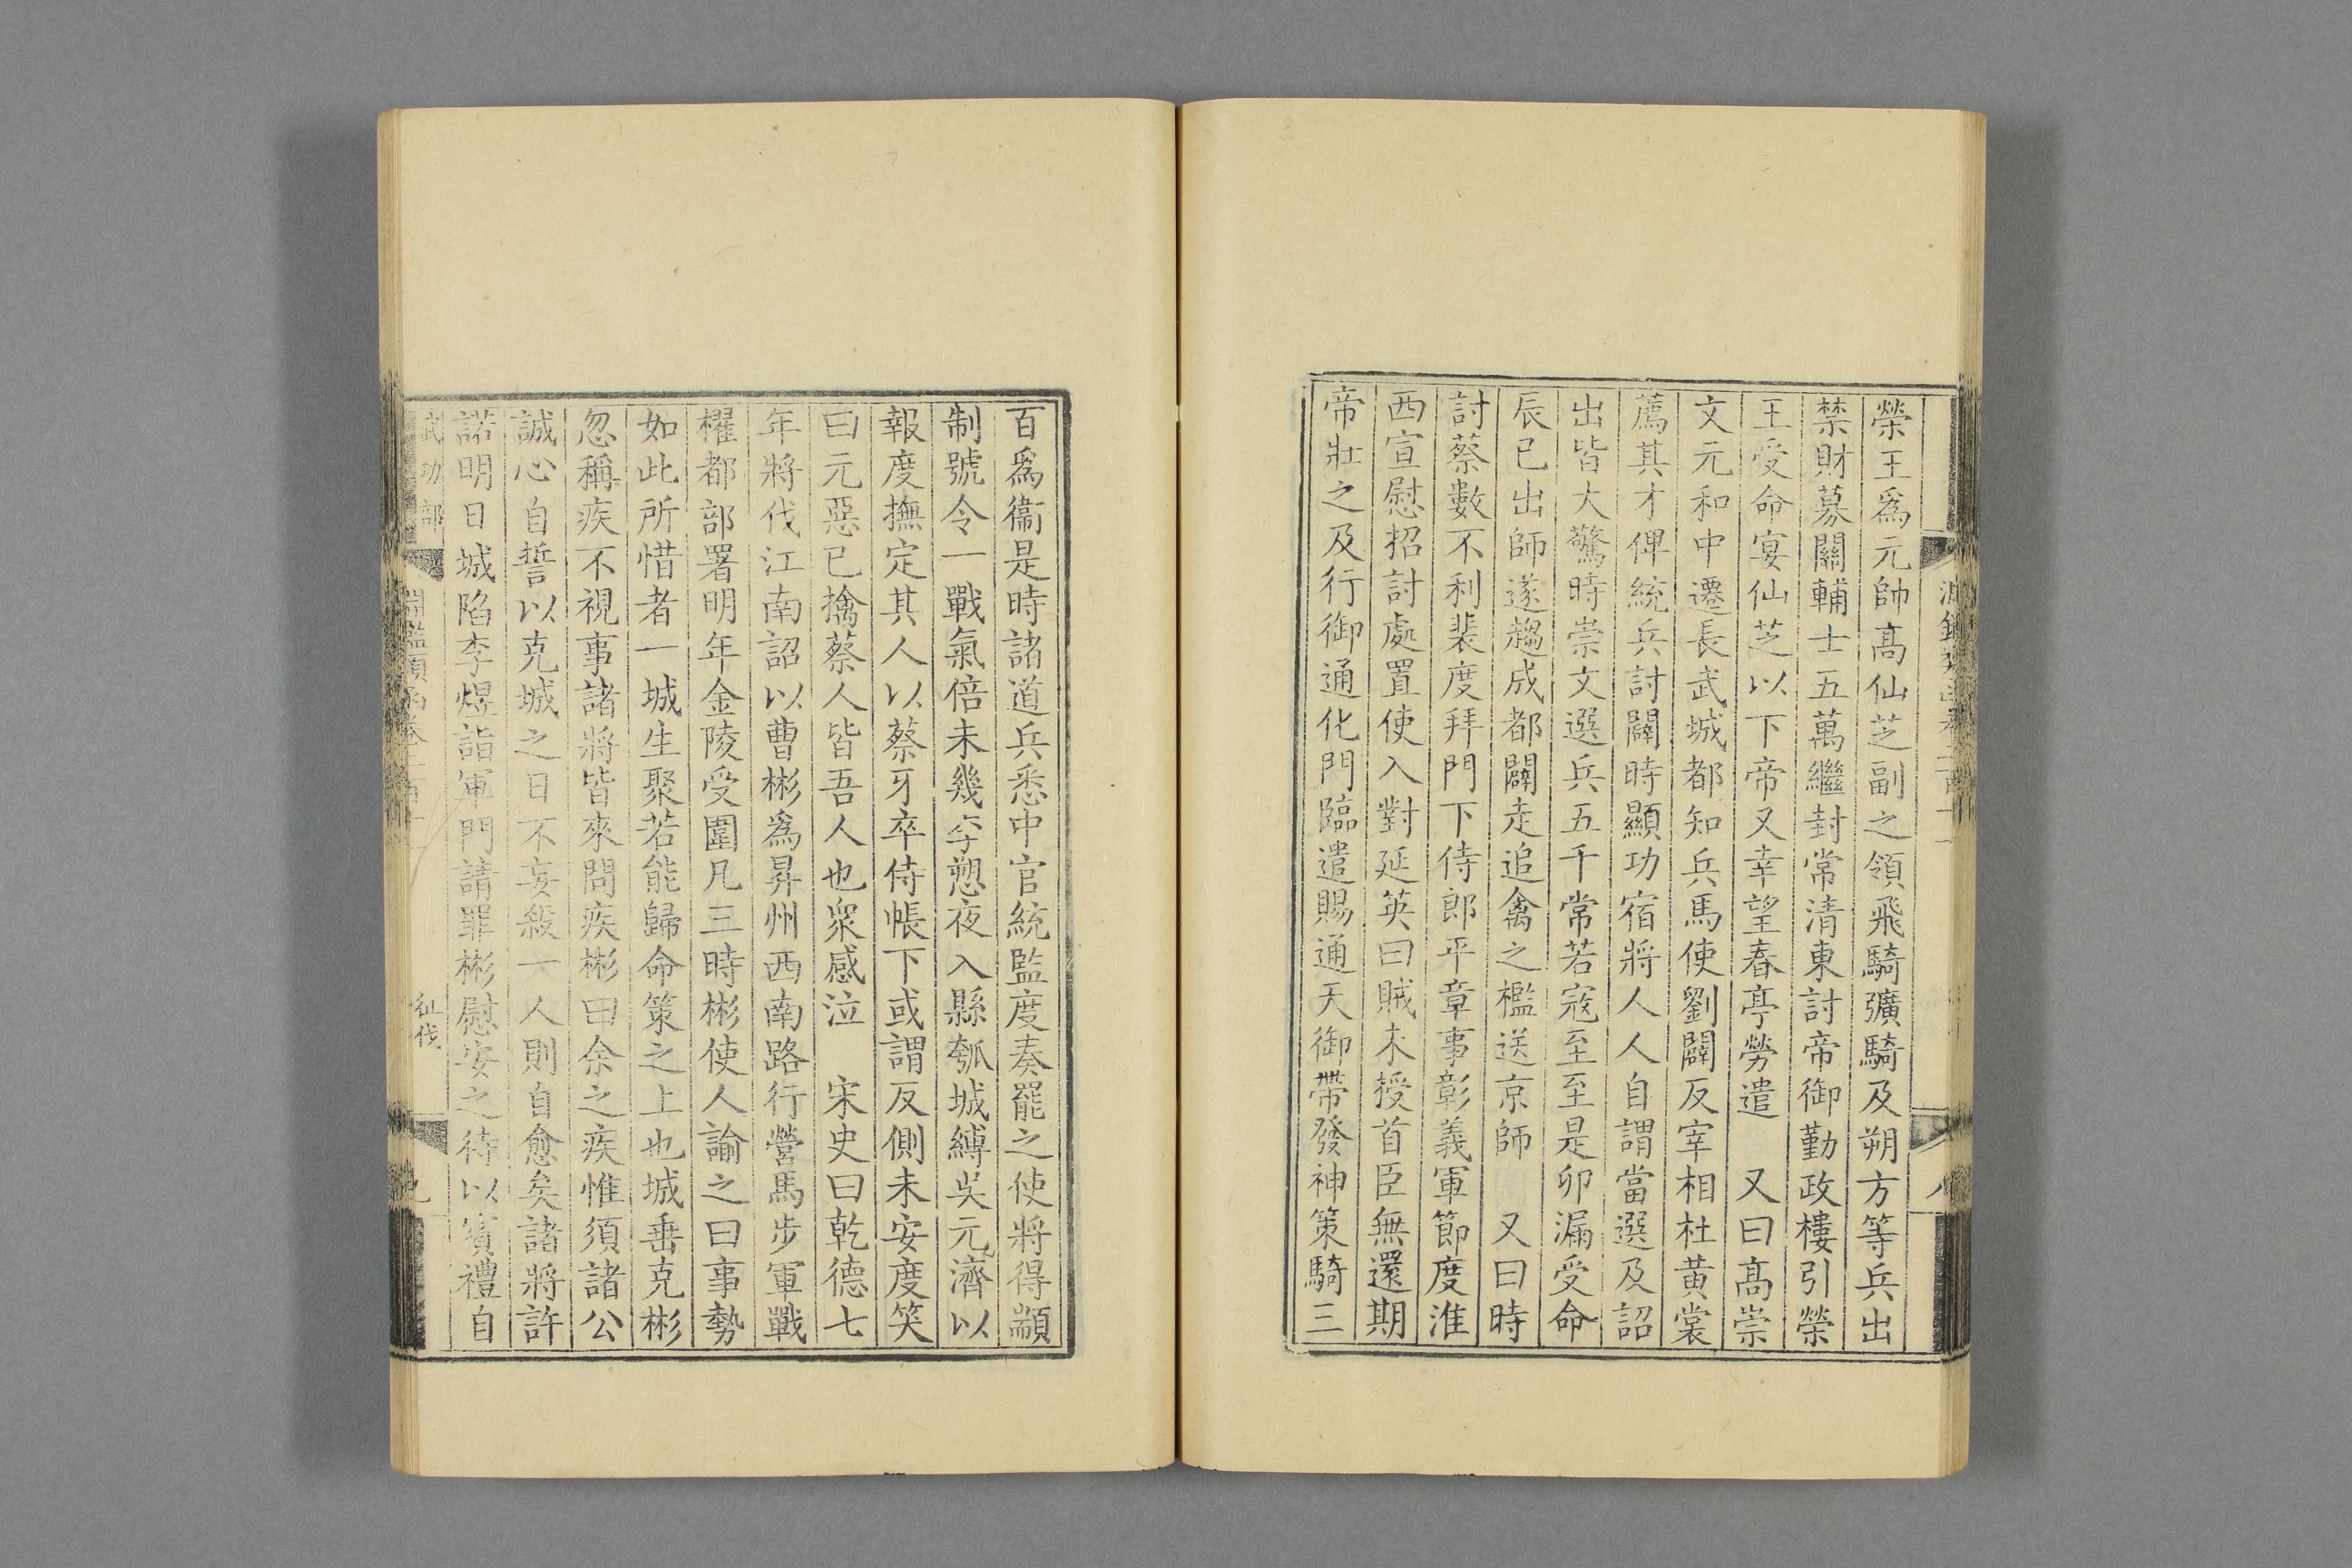 榮王爲元帥髙仙芝副之領飛騎彍騎及朔方等兵出
禁財募關輔士五萬繼封常清東討帝御勤政樓引榮
王受命宴仙芝以下帝又幸望春亭勞遣　又曰髙崇
文元和中遷長武城都知兵馬使劉闢反宰相杜黃裳
薦其才俾統兵討闢時顯功宿將人人自謂當選及詔
出皆大驚時崇文選兵五千常若寇至至是卯漏受命
辰已出師遂趨成都闢走追禽之檻送京師　又曰時
討蔡數不利裴度拜門下侍郎平章事彰義軍節度淮
西宣慰招討處置使入對延英曰賊未授首臣無還期
帝壯之及行御通化門臨遣賜通天御帶發神策騎三
百爲衞是時諸道兵悉中官統監度奏罷之使將得顓
制號令一戰氣倍未幾李愬夜入縣瓠城縛吳元濟以
報度撫定其人以蔡牙卒侍帳下或謂反側未安度笑
曰元惡已擒蔡人皆吾人也衆感泣　宋史曰乾德七
年將伐江南詔以曹彬爲昇州西南路行營馬步軍戰
櫂都部署明年金陵受圍凡三時彬使人諭之曰事勢
如此所惜者一城生聚若能歸命策之上也城垂克彬
忽稱疾不視事諸將皆來問疾彬曰余之疾惟須諸公
誠心自誓以克城之日不妄殺一人則自愈矣諸將許
諾明日城陷李煜詣軍門請罪彬慰安之待以賓禮自
武功部
淵鑑類函卷二百十一
征伐